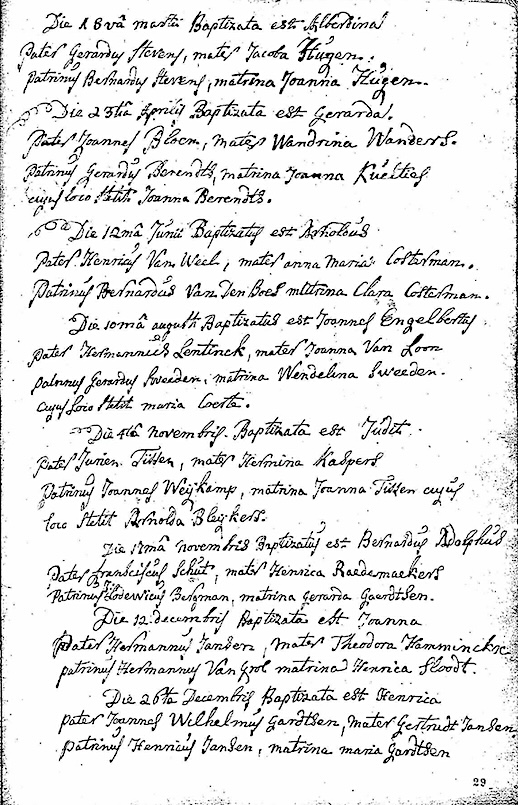 Die 18vâ martii Baptizata est Alberdina
Pater Gerardus Stevens, mater Jacoba Hugen.
Patrinus Bernardus Stevens, matrina Joanna Hugen.
Die 23tiâ Aprilis Baptizata est Gerarda.
Pater Joannes Blocm, mater Wandrina Wanders.
Patrinus Gerardus Berendts, matrina Joanna
cuyus loco stetit Joanna Berendts.
Die 12mâ Junii Baptizatus est Arnoldus
Pater Henricus Van Weel, mater anna maria Costerman.
Patrinus Bernardus Van Den Boes matrina Clara Costerman.
Die 10mâ augusti Baptizatus est Joannes Engelbertus
pater Hermannus Lentinck, mater Joanna Van Loon
patrinus Gerardus Sweeden, matrina Wendelina Sweeden.
cuyus loco stetit maria Coerte.
Die 4tâ novembris Baptizata est Judit.
Pater Jurien Tissen, mater Hermina Kaspers
Patrinus Joannes Weijkamp, matrina Joanna Tissen cuyus
loco stetit Arnolda Bleijkers.
Die 17mâ novembris Baptizatus est Bernardus Adolphus
Pater franciscus Schut, mater Henrica Raedemaekers
Patrinus Lodewicus Bergman, matrina Gerarda Gaerdtsen.
Die 12 decembris Baptizata est Joanna
Pater Hermannus Jansen, mater Theodora Hamminckx
patrinus Hermannus Van Grol matrina Henrica Sloodt.
Die 26ta Decembris Baptizata est Henrica
pater Joannes Wilhelmus Gardtsen, mater Gertrudt Jansen
Patrinus Henricus Jansen, matrina maria Gardtsen
29